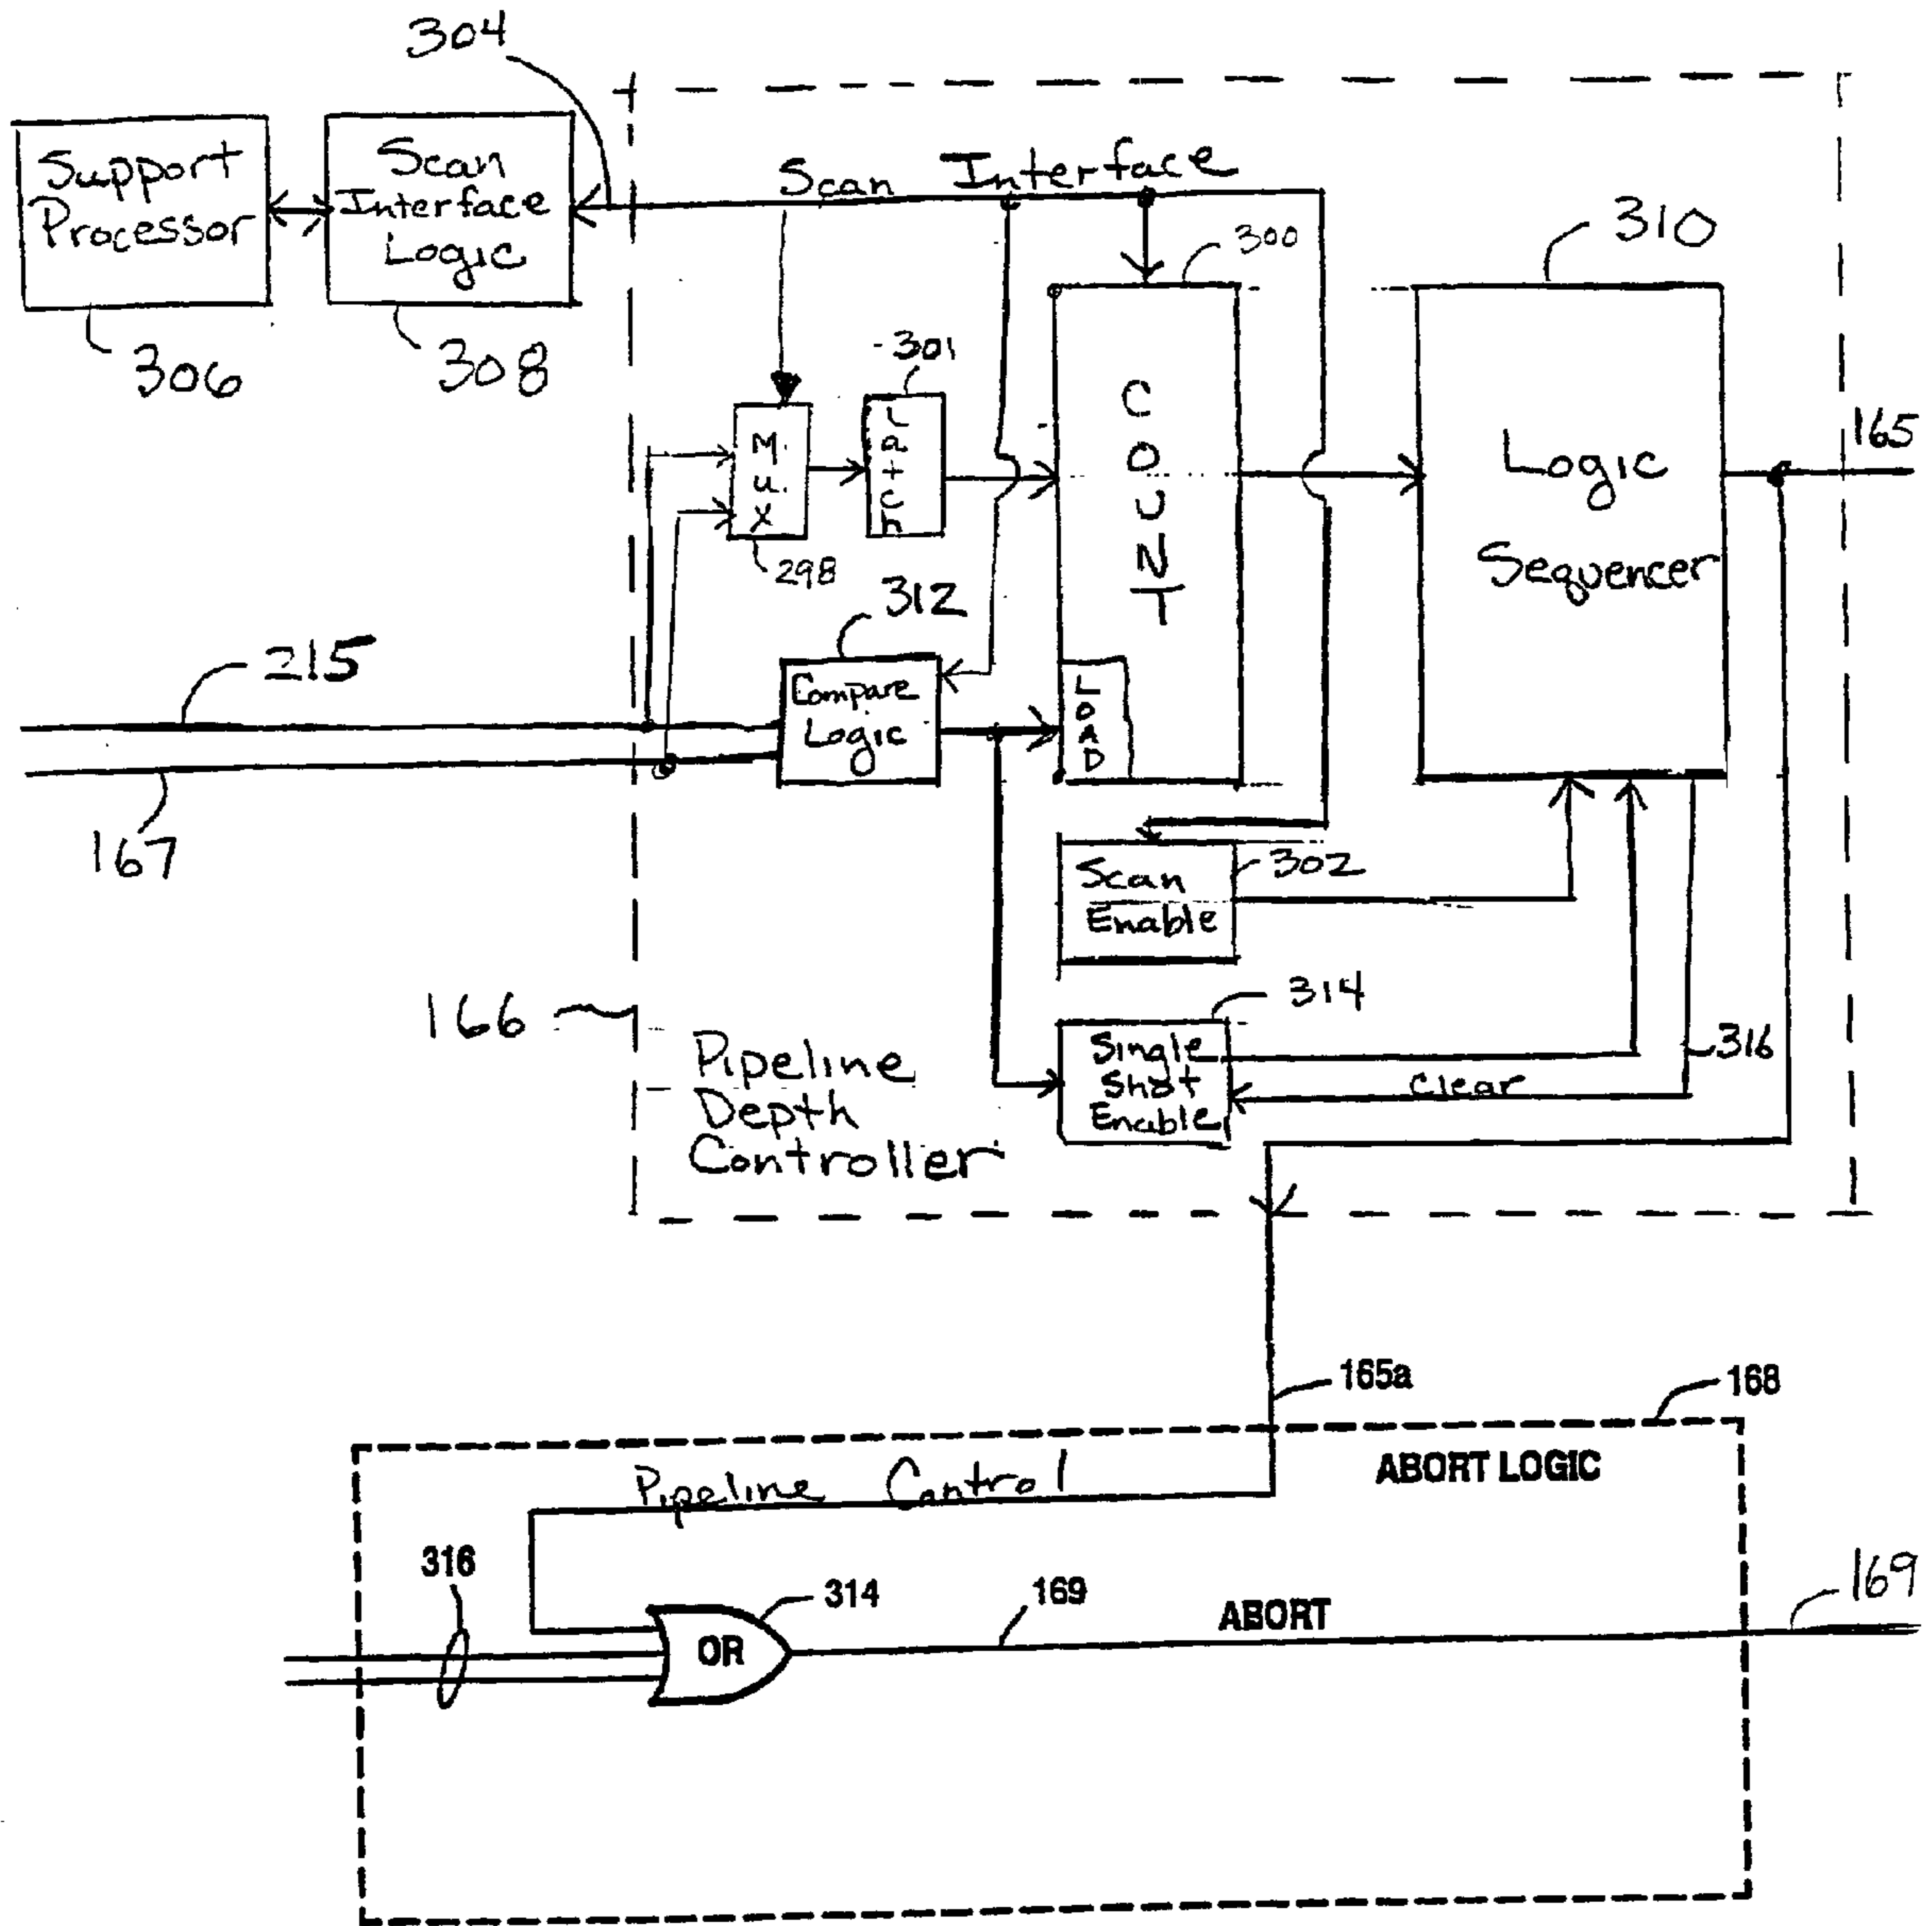 304
Support
Processor
Scan
Interface
Logic
Scan Interface
300
310
306
308
301
Mux
Latch
COUNT
Logic
Sequencer
165
298
312
215
Compare
Logic
LOAD
167
Scan
Enable
302
166
Pipeline
Depth
Controller
314
Single
Shot
Enable
316
Clear
165a
168
ABORT LOGIC
Pipeline Control
316
314
OR
169
ABORT
169